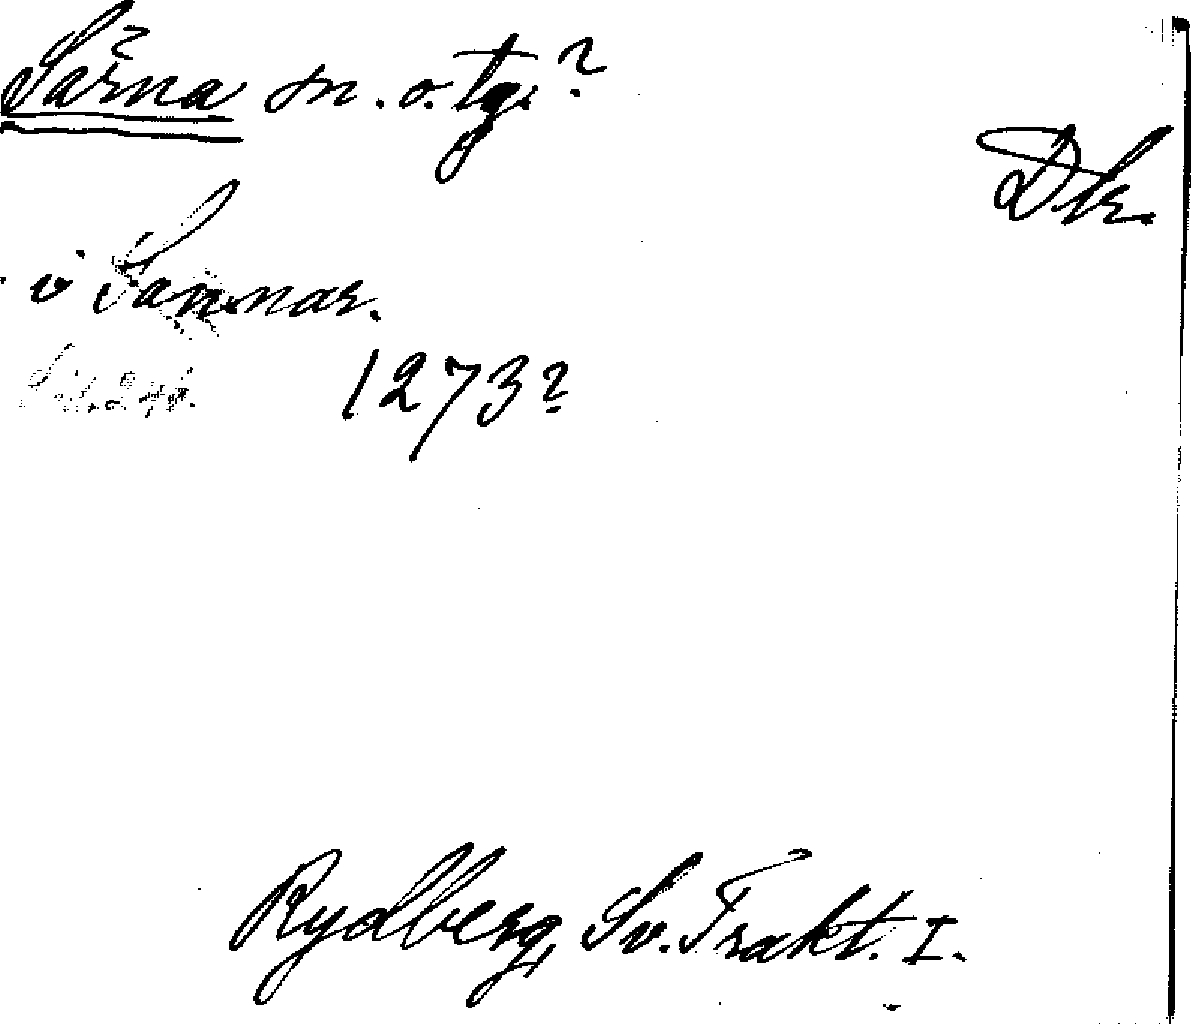 Särna sn. o. tg.?
Dlr.
i Sarnnar.
1273?
Rydberg, Sv. Trakt. I.